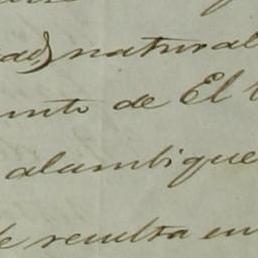 ad) natural
unto de El
alambique
de resulta en